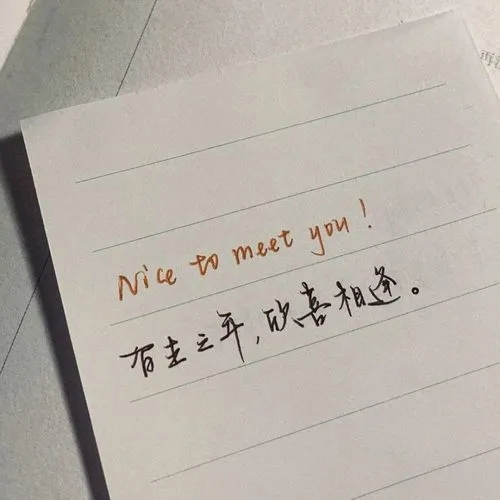 Nice to meet you!
有生之年，欣喜相逢。